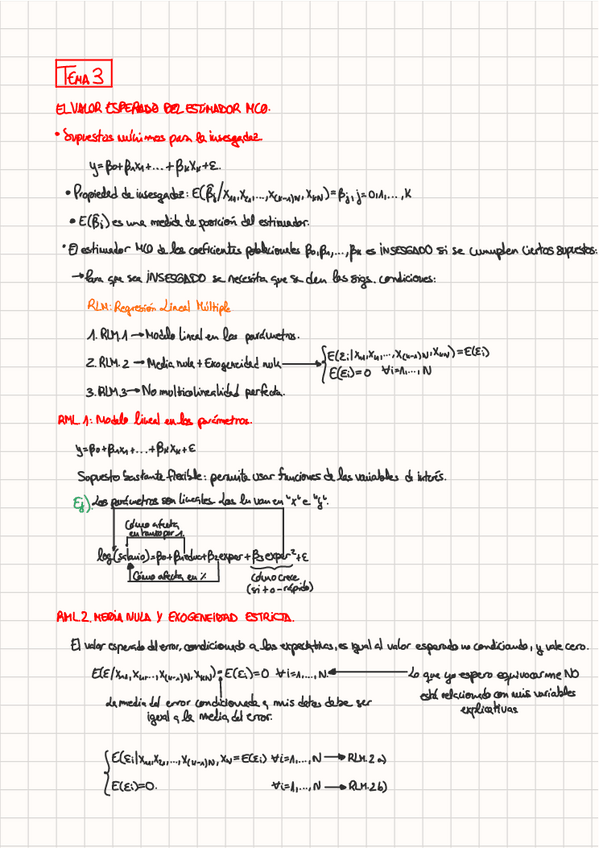 TEMA 3
EL VALOR ESPERADO DEL ESTIMADOR MCO.
• Supuestos mínimos para la insesgadez
y=β0+β1x1+...+βkxk+ε.
• Propiedad de insesgadez: E(β̂j/x11,x21,...,x(k-1)N,xkN)=βj, j=0,1,...,K
• E(β̂j) es una medida de posición del estimador.
• El estimador MCO de los coeficientes poblacionales β0,β1,...,βk es INSESGADO si se cumplen ciertos supuestos:
→ Para que sea INSESGADO se necesita que se den las sigs. condiciones:
RLM: Regresión Lineal Múltiple
1. RLM.1 → Modelo lineal en los parámetros.
2. RLM.2 → Media nula + Exogeneidad nula → { E(εi|x11,x21,...,x(k-1)N,xkN)=E(εi)
E(εi)=0 ∀i=1,...,N
3. RLM.3 → No multicolinealidad perfecta.
RML.1: Modelo lineal en los parámetros.
y=β0+β1x1+...+βkxk+ε
Supuesto bastante flexible: permite usar funciones de las variables de interés.
Ej). Los parámetros son lineales, los ln van en "x" e "y".
Cómo afecta
en tanto por 1.
log(salario)=β0+β1educ+β2exper+β3exper²+ε
Cómo afecta en %
cómo crece
(si + o - rápido)
RML.2. MEDIA NULA Y EXOGENEIDAD ESTRICTA.
El valor esperado del error, condicionado a las expectativas, es igual al valor esperado no condicionado, y vale cero.
E(ε/x11,x21,...,x(k-1)N,xkN)=E(εi)=0 ∀i=1,...,N. ← Lo que yo espero equivocarme NO
está relacionado con mis variables
explicativas
La media del error condicionada a mis datos debe ser
igual a la media del error.
{ E(εi|x11,x21,...,x(k-1)N,xkN=E(εi) ∀i=1,...,N → RLM.2a)
E(εi)=0. ∀i=1,...,N → RLM.2b)